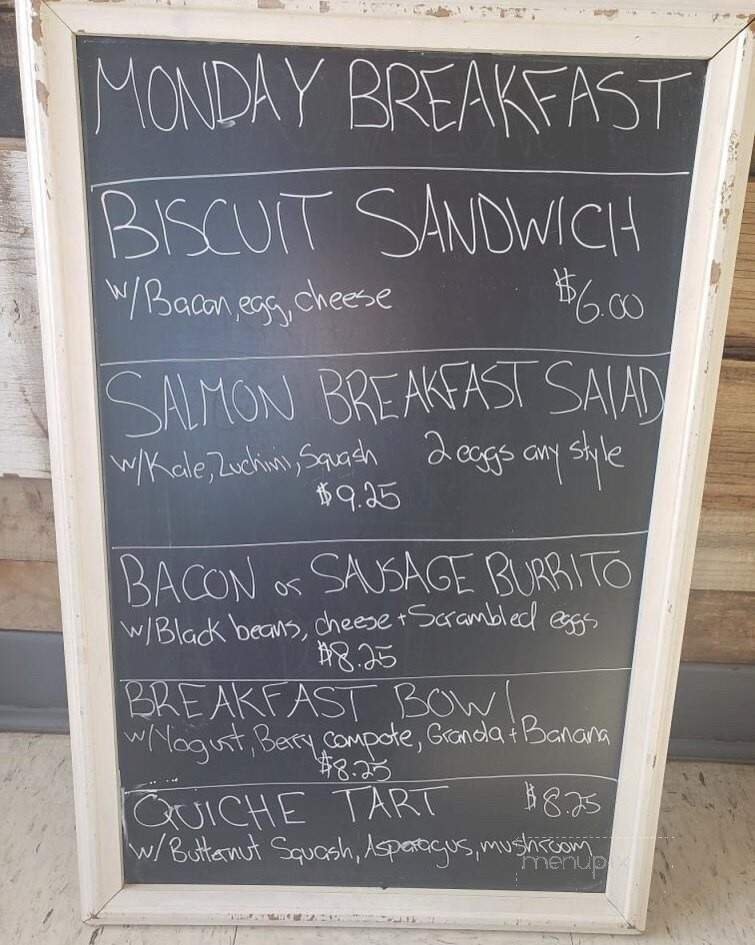 MONDAY BREAKFAST
BISCUIT SANDWICH
w/Bacon, egg, cheese $6.00
SALMON BREAKFAST SALAD
w/Kale, Zuchini, Squash 2 eggs any style
$9.25
BACON or SAUSAGE BURRITO
w/Black beans, cheese + Scrambled eggs
$8.25
BREAKFAST BOWL
w/Yogurt, Berry compote, Granola + Banana
$8.25
QUICHE TART $8.25
w/ Butternut Squash, Asparagus, mushroom
menupix